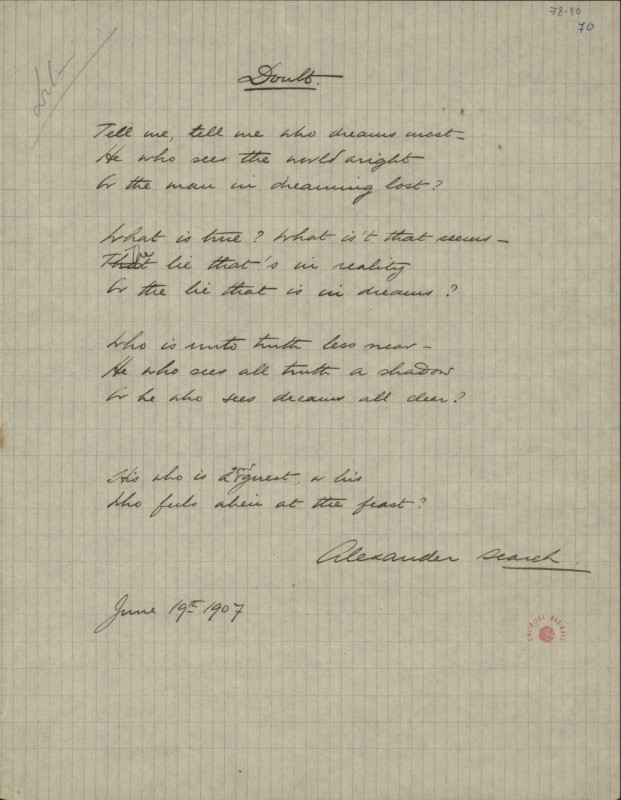 78-90
70
Doubt.
Tell me, tell me who dreams most —
He who sees the world aright
Or the man in dreaming lost?
What is true? What is't that seems —
That The lie that's in reality
Or the lie that is in dreams?
Who is unto truth less near —
He who sees all truth a shadow
Or he who sees dreams all clear?
His who is a good guest, or his
Who feels alien at the feast?
Alexander Search.
June 19th 1907